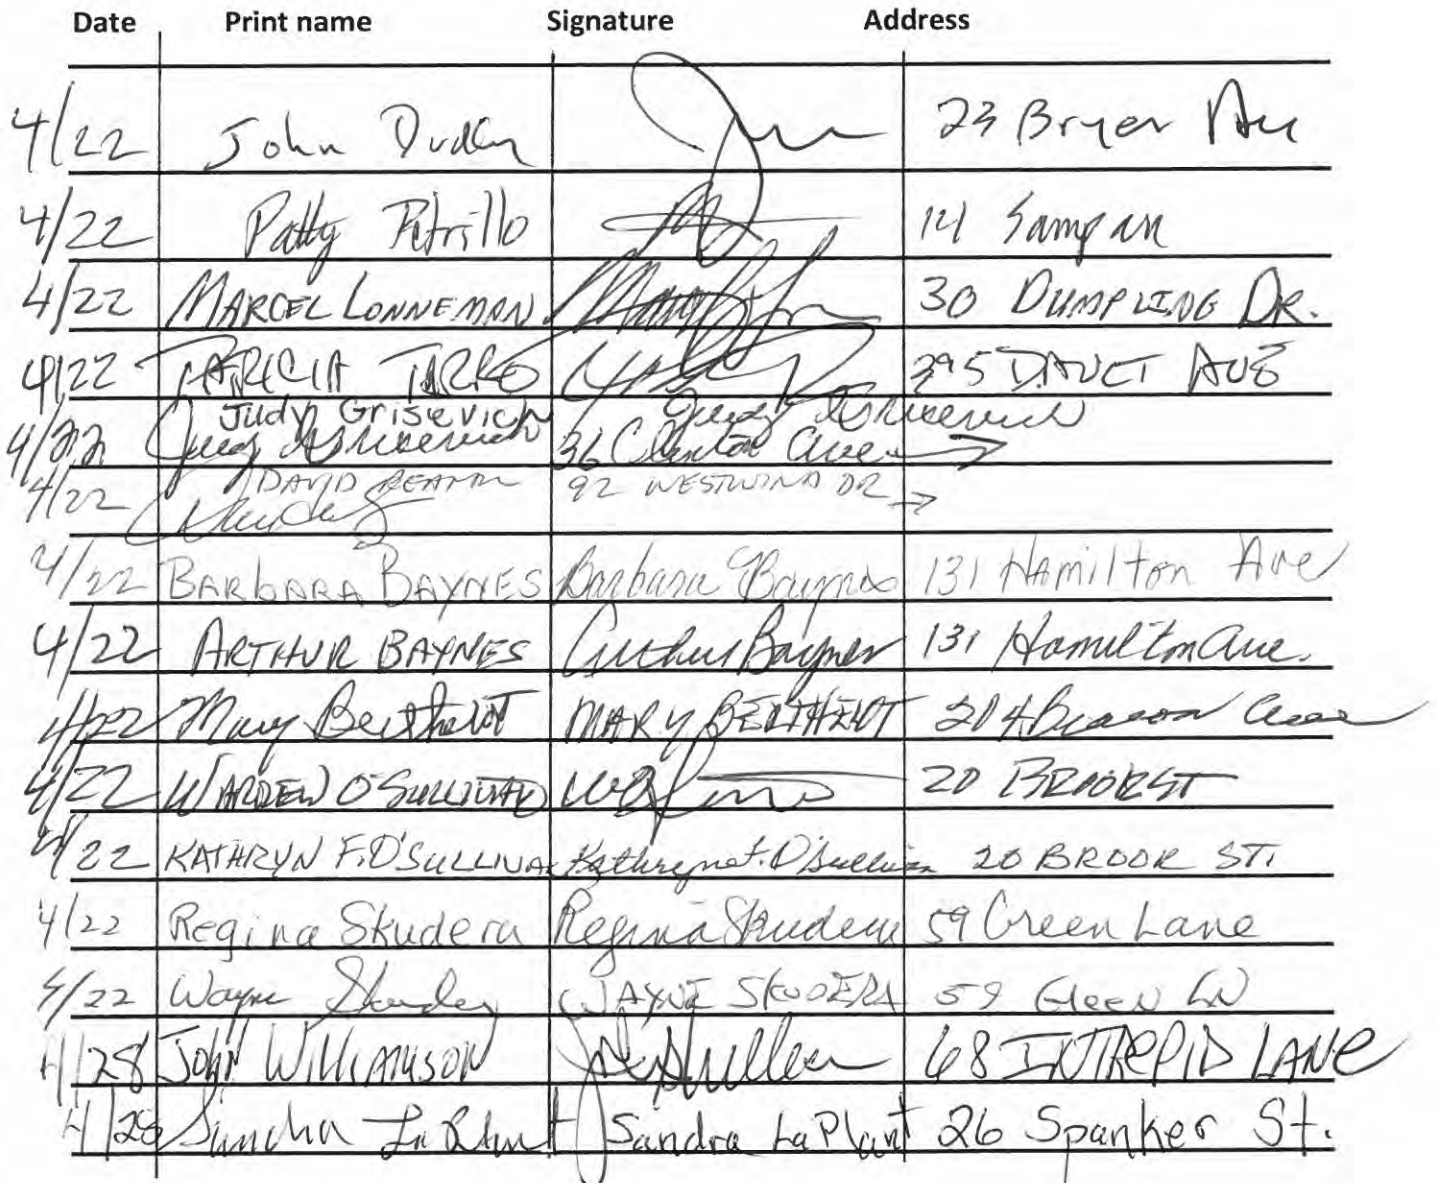 Date Print name Signature Address
4/22 John Dudley 23 Bryer Ave
4/22 Patty Petrillo 14 Sampan
4/22 MARCEL LONNEMAN 30 DUMPLING DR.
4/22 PATRICIA 295 AVE
Judy Grisevich Judy Grisevich
4/22 Judy Grisevich 36 Clinton Ave →
4/22 DAVID 92 WESTWIND DR →
4/22 BARBARA BAYNES Barbara Baynes 131 HAmilton Ave
4/22 ARTHUR BAYNES Arthur Baynes 131 Hamilton Ave.
4/22 Mary MARY 204 Beacon Ave
4/22 WARDEN O'SULLIVAN 20 BROOK ST
4/22 KATHRYN F. O'SULLIVAN Kathryn F. O'Sullivan 20 BROOK ST.
4/22 Regina Skudera Regina Skudera 59 Green Lane
4/22 Wayne Skudera WAYNE SKUDERA 59 Green LN
4/28 JOHN WILLIAMSON 68 INTREPID LANE
4/28 Sandra LaPlant Sandra LaPlant 26 Spanker St.